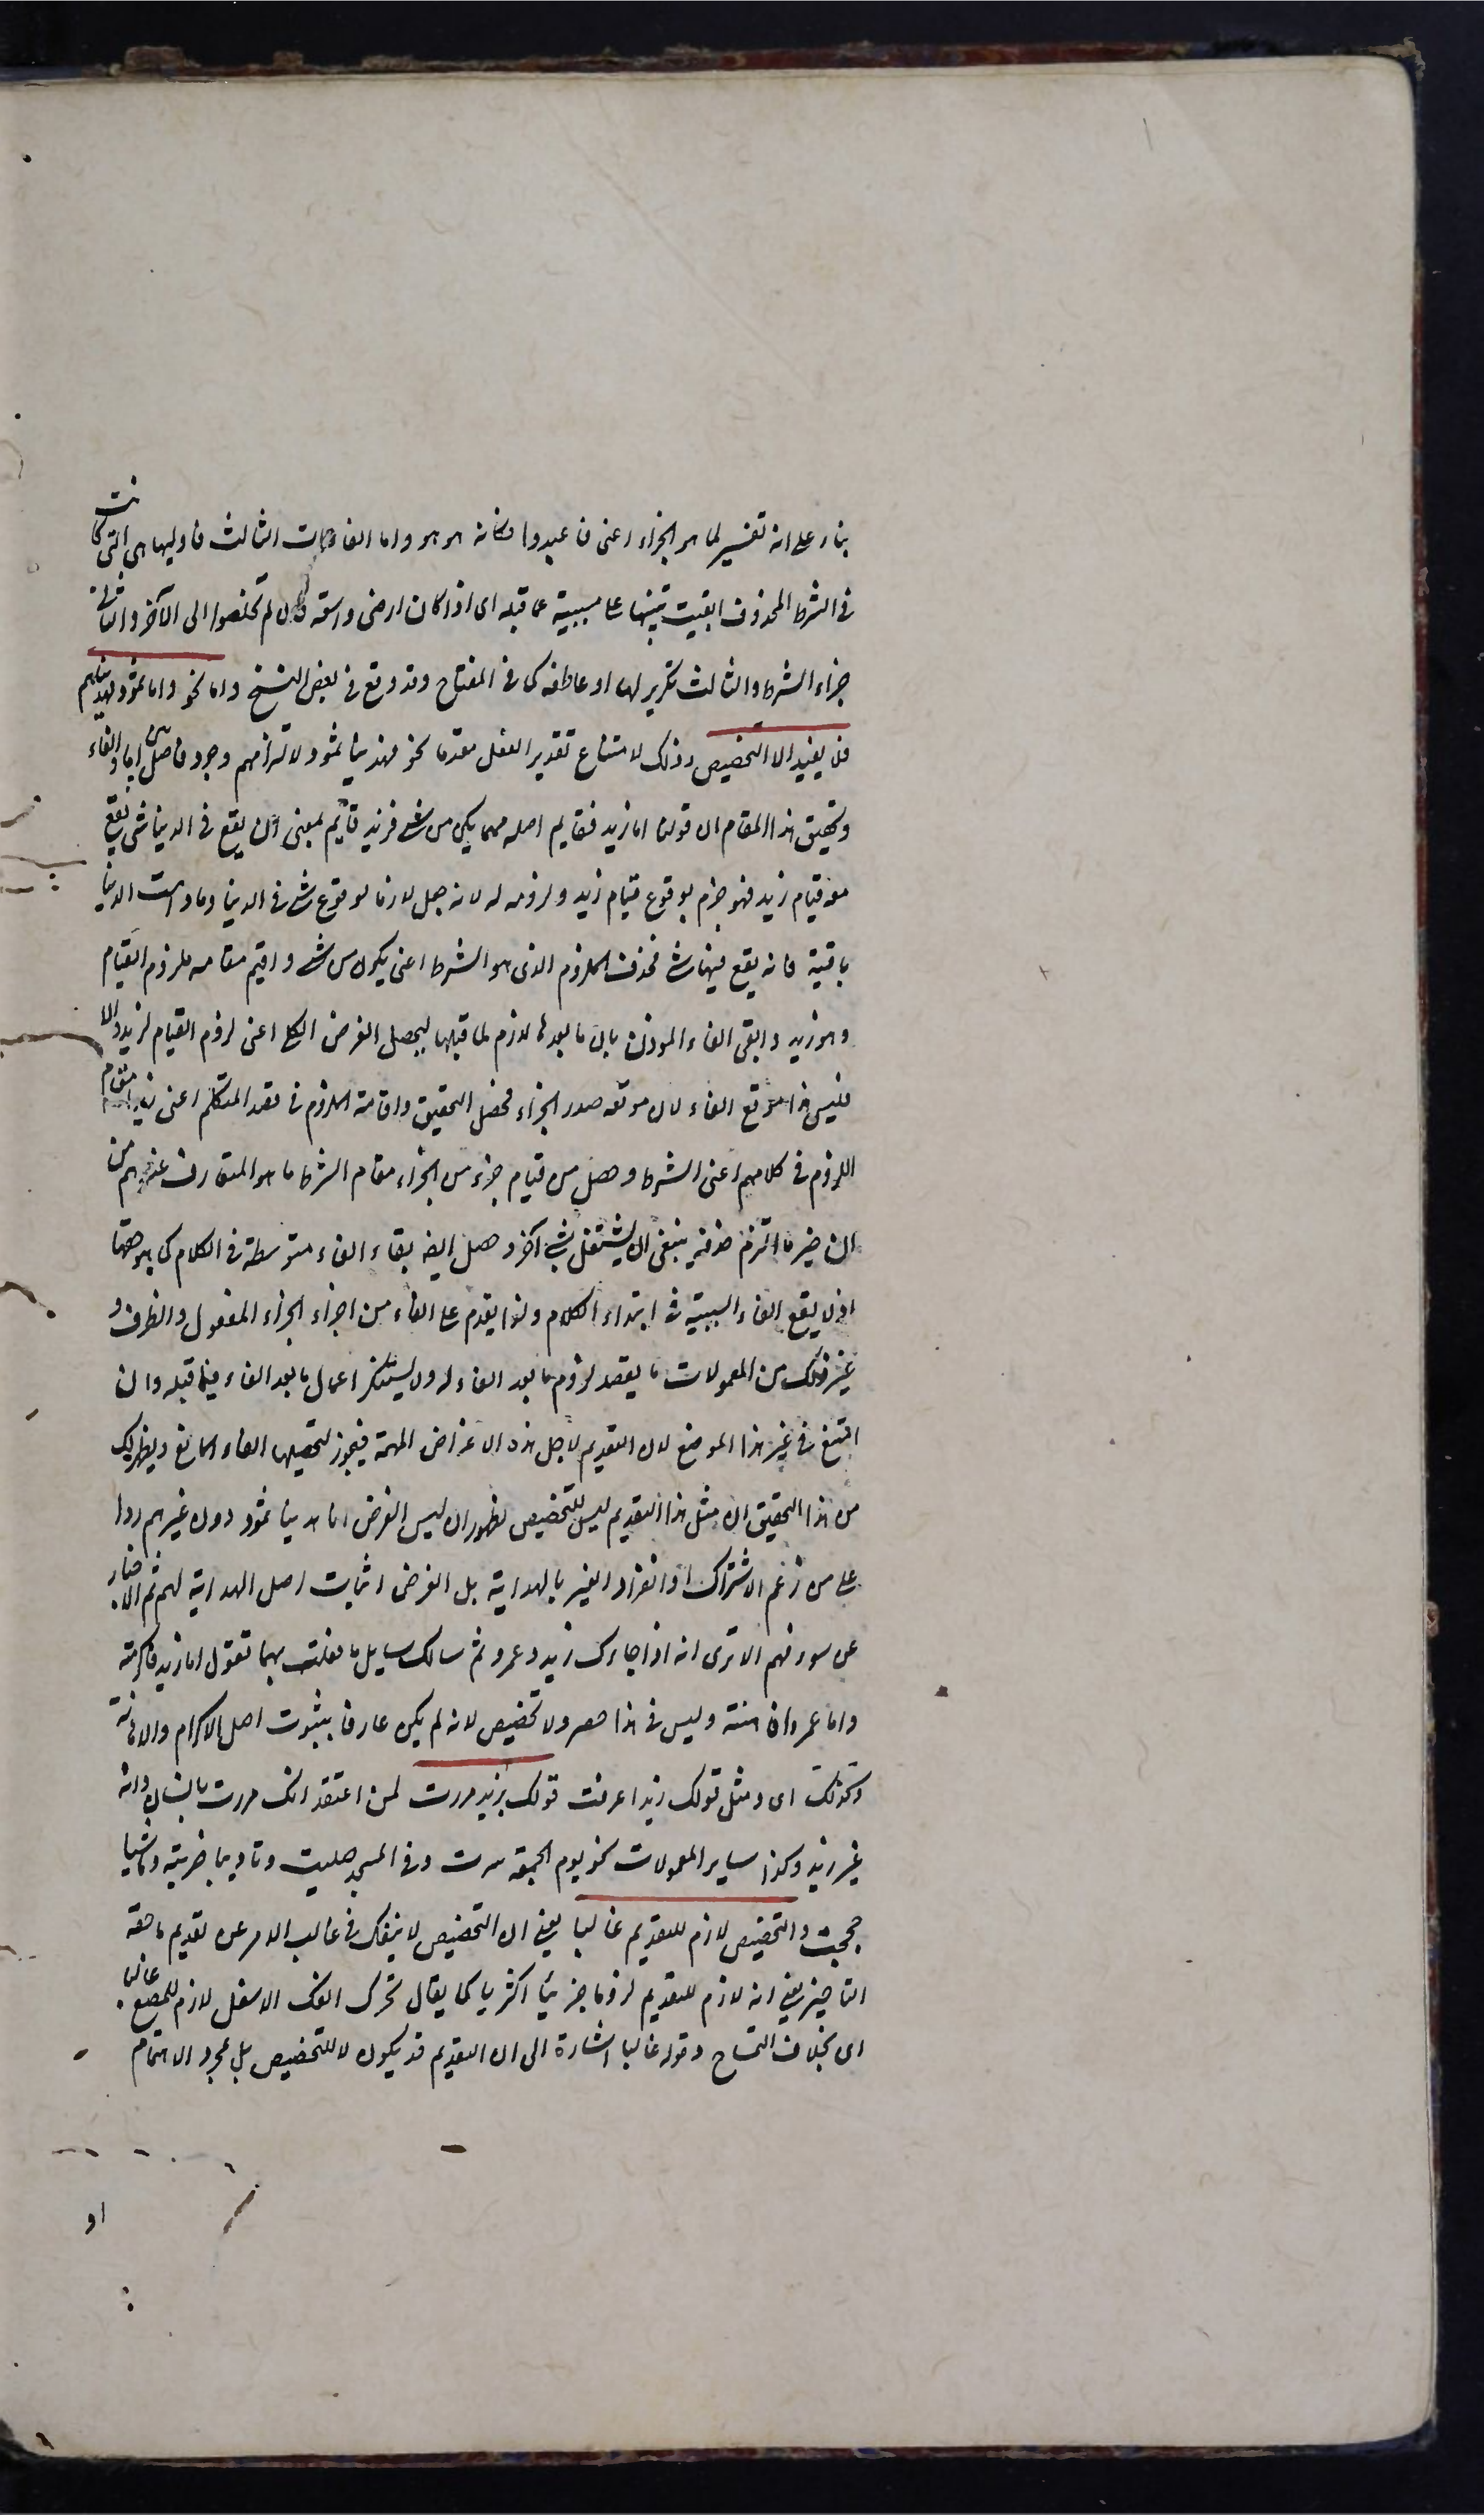 بناء على انه تفسير لما هو الجزاء اعنى فاعبدوا فكانه هو هو واما الفاءات الثالث فاوليها هى التى كانت
فى الشرط المحذوف ابقيت تنبيها على مسببية عما قبله اى اذا كان ارضى واسعة فان لم تخلصوا الى الآخر والثانى
جزاء الشرط والثالث تكرير لها او عاطفة كما فى المفتاح وقد وقع فى بعض النسخ واما نحو واما ثمود فهديناهم
فلا يفيد الا التخصيص وذلك لامتناع تقدير الفعل مقدما نحو فهدينا ثمود لالتزامهم وجود فاصل بين اما والفاء
وتحقيق هذا المقام ان قولنا اما زيد فقايم اصله مهما يكن من شئ فزيد قايم بمعنى ان يقع فى الدنيا شئ يقع
معه قيام زيد فهو جزم بوقوع قيام زيد ولزومه له لانه جعل لازما لوقوع شئ فى الدنيا وما دامت الدنيا
باقية فانه يقع فيها شئ فحذف الملزوم الذى هو الشرط اعنى يكون من شئ واقيم مقامه ملزوم القيام
وهو زيد وابقى الفاء الموذن بان ما بعدها لازم لما قبلها ليحصل الغرض الكلى اعنى لزوم القيام لزيد والا
فليس هذا موقع الفاء لان موقعه صدر الجزاء فحصل التخفيف واقامة الملزوم فى قصد المتكلم اعنى زيد مقام
اللزوم فى كلامهم اعنى الشرط وحصل من قيام جزء من الجزاء مقام الشرط ما هو المتعارف عندهم من
ان حيز ما التزم حذفه ينبغى ان يشتغل بشئ آخر وحصل ايضا بقاء الفاء متوسطة فى الكلام كما هو حقها
اذ لا يقع الفاء السببية فى ابتداء الكلام ولذا يقدم على الفاء من اجزاء الجزاء المفعول والظرف و
غير ذلك من المعمولات ما يقصد لزوم ما بعد الفاء له ولا يستنكر اعمال ما بعد الفاء فيما قبله وان
امتنع فى غير هذا الموضع لان التقديم لاجل هذه الاغراض المهمة فيجوز لتحصيلها الغاء المانع ويظهر لك
من هذا التحقيق ان مثل هذا التقديم ليس للتخصيص لظهور ان ليس الغرض اما هدينا ثمود دون غيرهم ردا
على من زعم الاشتراك او انفراد الغير بالهداية بل الغرض اثبات اصل الهداية لهم ثم الاخبار
عن سوء فعلهم الا ترى انه اذا جاءك زيد وعمرو ثم سالك سايل ما فعلت بهما تقول اما زيد فاكرمته
واما عمرو فاهنته وليس فى هذا حصر ولا تخصيص لانه لم يكن عارفا بثبوت اصل الاكرام والاهانة
وكذلك اى ومثل قولك زيدا عرفت قولك بزيد مررت لمن اعتقد انك مررت بانسان وانه
غير زيد وكذا ساير المعمولات نحو يوم الجمعة سرت وفى المسجد صليت وتاديبا ضربته وماشيا
حججت والتخصيص لازم للتقديم غالبا يعنى ان التخصيص لا ينفك فى غالب الامر عن تقديم ما حقه
التاخير يعنى انه لازم للتقديم لزوما جزئيا اكثريا كما يقال تحرك الفك الاسفل لازم للمضغ غالبا
اى بخلاف التمساح وقوله غالبا اشارة الى ان التقديم قد يكون لا للتخصيص بل لمجرد الاهتمام
او